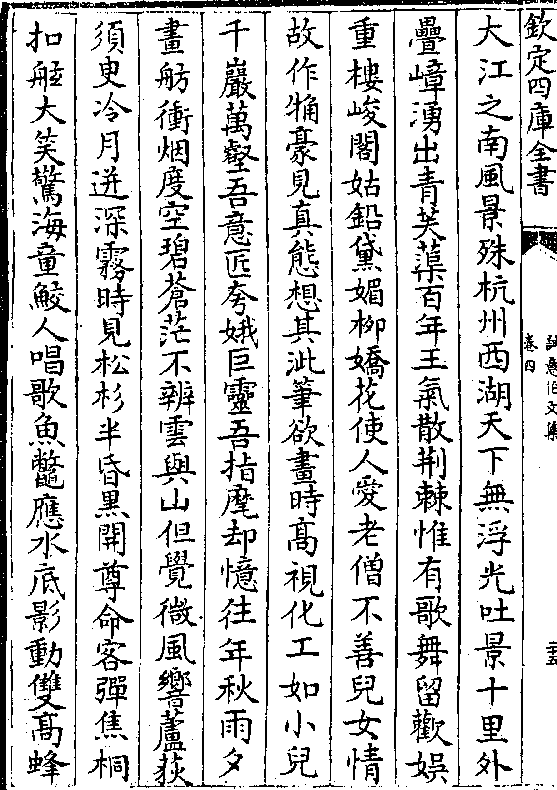 欽定四庫全書
誠意伯文集
卷四
三五
大江之南風景殊杭州西湖天下無浮光吐景十里外
疊嶂湧出青芙蕖百年王氣散荆棘惟有歌舞留歡娯
重樓峻閣姑鉛黛媚柳嬌花使人愛老僧不善兒女情
故作觕豪見真態想其泚筆欲畫時髙視化工如小兒
千巖萬壑吾意匠夸娥巨靈吾指麾却憶往年秋雨夕
畫舫衝烟度空碧蒼茫不辨雲與山但覺微風響蘆荻
須臾冷月迸深霧時見松杉半昏黒開尊命客彈焦桐
扣舷大笑驚海童鮫人唱歌魚鼈應水底影動雙髙蜂